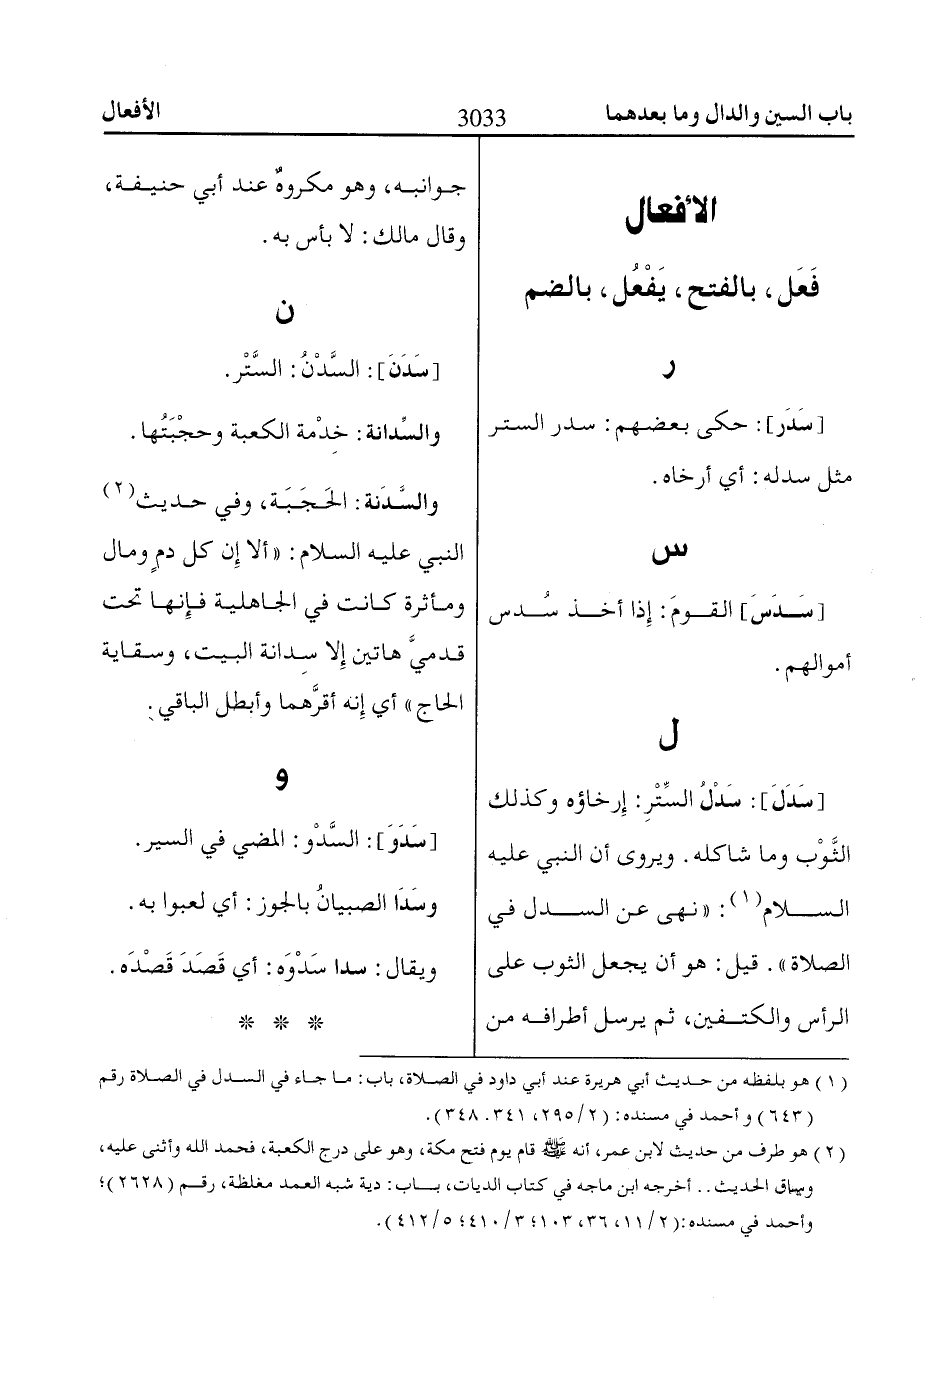 باب السين والدال وما بعدهما
3033
الأفعال
الأفعال
فَعَل، بالفتح، يَفْعُل، بالضم
ر
[سَدَر]: حكى بعضهم: سدر الستر
مثل سدله: أي أرخاه.
س
[سَدَسَ] القومَ: إذا أخذ سُدس
أموالهم.
ل
[سَدَلَ]: سَدْلُ السِّتْر: إرخاؤه وكذلك
الثَّوْب وما شاكله. ويروى أن النبي عليه
السلام(١): «نهى عن السدل في
الصلاة». قيل: هو أن يجعل الثوب على
الرأس والكتفين، ثم يرسل أطرافه من
جوانبه، وهو مكروهٌ عند أبي حنيفة،
وقال مالك: لا بأس به.
ن
[سَدَنَ]: السَّدْنُ: السَّتْر.
والسِّدانة: خدْمة الكعبة وحجْبَتُها.
والسَّدَنة: الحَجَبَة، وفي حديث(٢)
النبي عليه السلام: «ألا إن كل دمٍ ومال
ومأثرة كانت في الجاهلية فإنها تحت
قدميَّ هاتين إلا سِدانة البيت، وسقاية
الحاج» أي إنه أقرَّهما وأبطل الباقي.
و
[سَدَوَ]: السَّدْو: المضي في السير.
وسَدَا الصبيانُ بالجوز: أي لعبوا به.
ويقال: سدا سَدْوَه: أي قَصَدَ قَصْدَه.
* * *
(١) هو بلفظه من حديث أبي هريرة عند أبي داود في الصلاة، باب: ما جاء في السدل في الصلاة رقم
(٦٤٣) و أحمد في مسنده: (٢/٢٩٥، ٣٤١. ٣٤٨).
(٢) هو طرف من حديث لابن عمر، أنه ﷺ قام يوم فتح مكة، وهو على درج الكعبة، فحمد الله وأثنى عليه،
وساق الحديث.. أخرجه ابن ماجه في كتاب الديات، باب: دية شبه العمد مغلظة، رقم (٢٦٢٨)؛
وأحمد في مسنده:(٢/١١، ٣٦، ١٠٣؛ ٣/٤١٠؛ ٥/٤١٢).